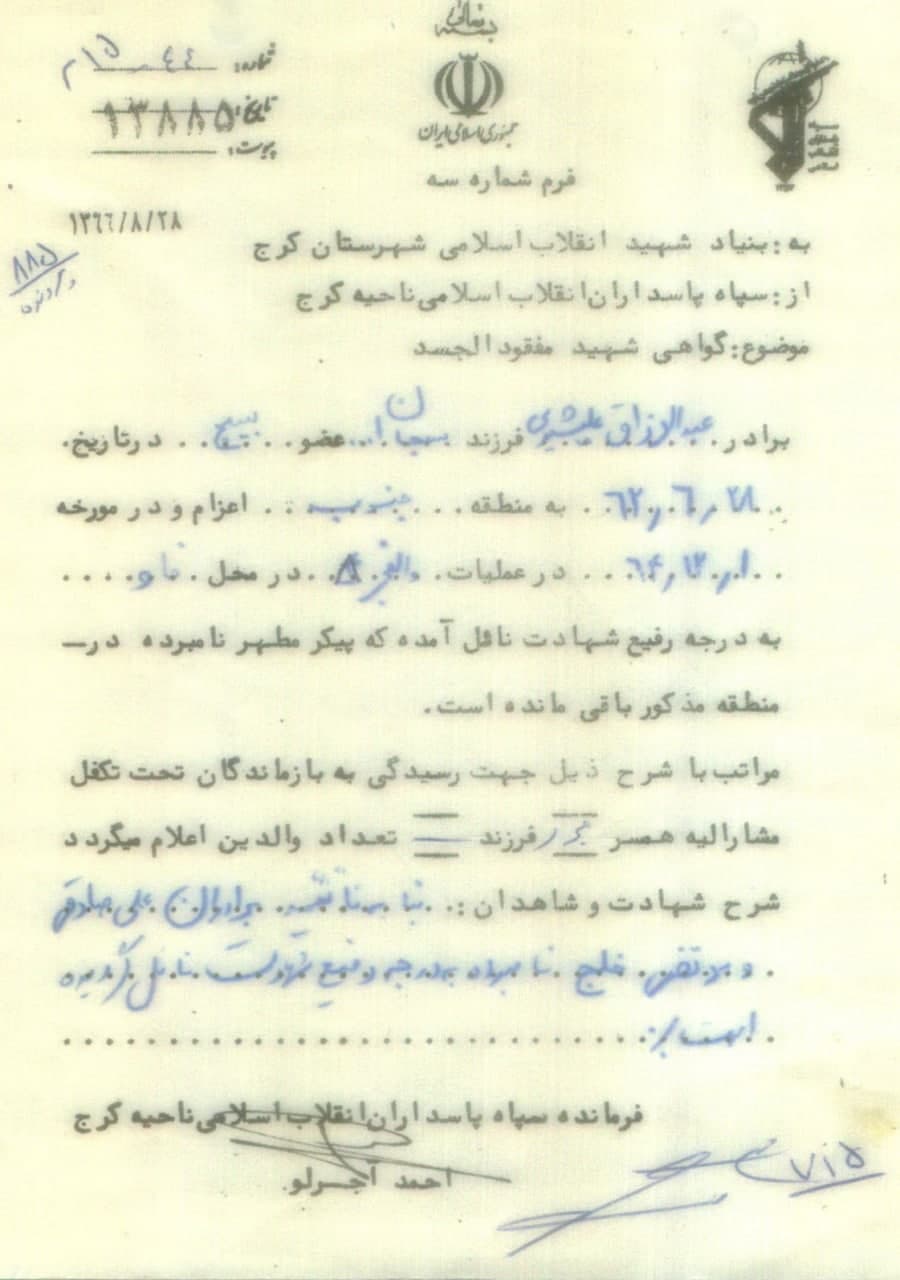 بسمه تعالی
جمهوری اسلامی ایران
شماره: ۴۴ـ۱۵م
تاریخ: ۱۳۸۸۵
پیوست:
فرم شماره سه
۱۳۶۶/۸/۲۸
۸۸۵
به: بنیاد شهید انقلاب اسلامی شهرستان کرج
از: سپاه پاسداران انقلاب اسلامی ناحیه کرج
موضوع: گواهی شهید مفقود الجسد
برادر. عبدالرزاق علیشیری فرزند سبحان ... عضو .. بسیج .. درتاریخ.
.. ۶۲،۶،۲۸ .. به منطقه ... جنوب .. اعزام و در مورخه
... ۶۴،۱۲،۱ ... در عملیات. والفجر ۸ .. در محل . فاو ....
به درجه رفیع شهادت نائل آمده که پیکر مطهر نامبرده درـ
منطقه مذکور باقی مانده است.
مراتب با شرح ذیل جهت رسیدگی به بازماندگان تحت تکفل
مشارالیه همسر مجرد فرزند ـــ تعداد والدین اعلام میگردد
شرح شهادت و شاهدان: .. بنا به برادران علی صادق
. و مرتضی خلج نامبرده بدرجه رفیع شهادت نائل گردیده
. است
فرمانده سپاه پاسداران انقلاب اسلامی ناحیه کرج
احمد آجرلو.
۷۱۵